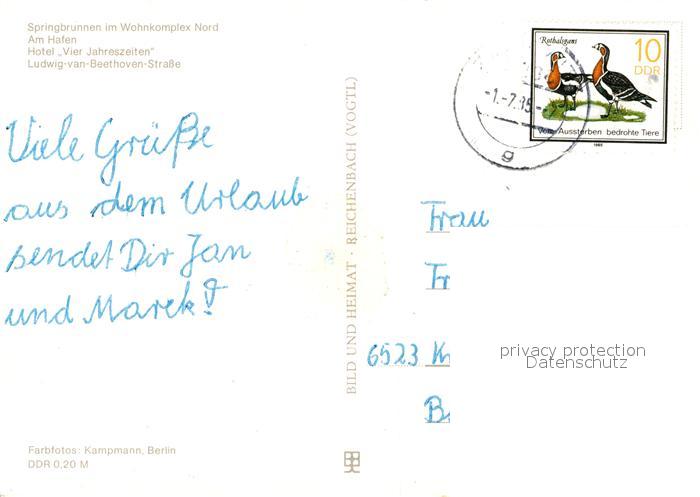 Springbrunnen im Wohnkomplex Nord
Am Hafen
Hotel „Vier Jahreszeiten"
Ludwig-van-Beethoven-Straße
Rothalsgans
10
DDR
-1.-7.85-
Vom Aussterben bedrohte Tiere
1985
g
Viele Grüße
aus dem Urlaub
sendet Dir Jan
und Marek!
BILD UND HEIMAT · REICHENBACH (VOGTL)
Frau
Fr
6523 K
B
privacy protection
Datenschutz
Farbfotos: Kampmann, Berlin
DDR 0,20 M